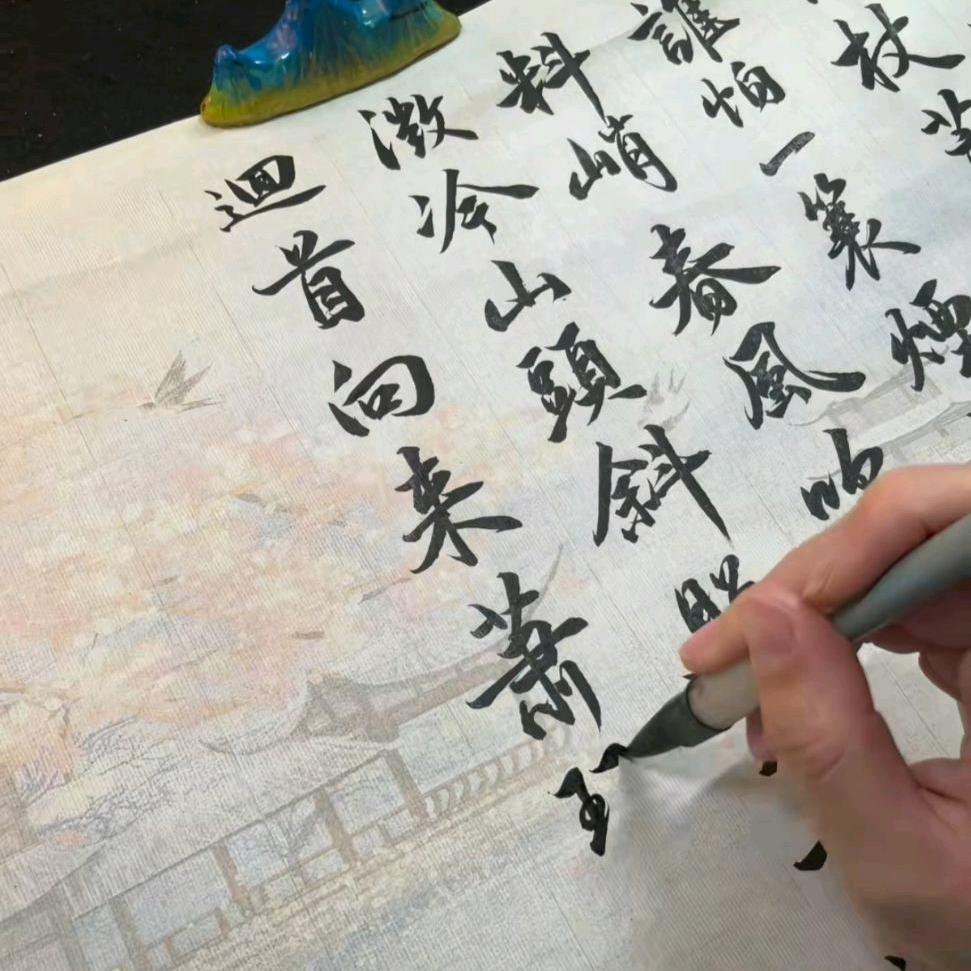 杖
誰怕一蓑煙
料峭春風吹
微冷山頭斜
迴首向来蕭